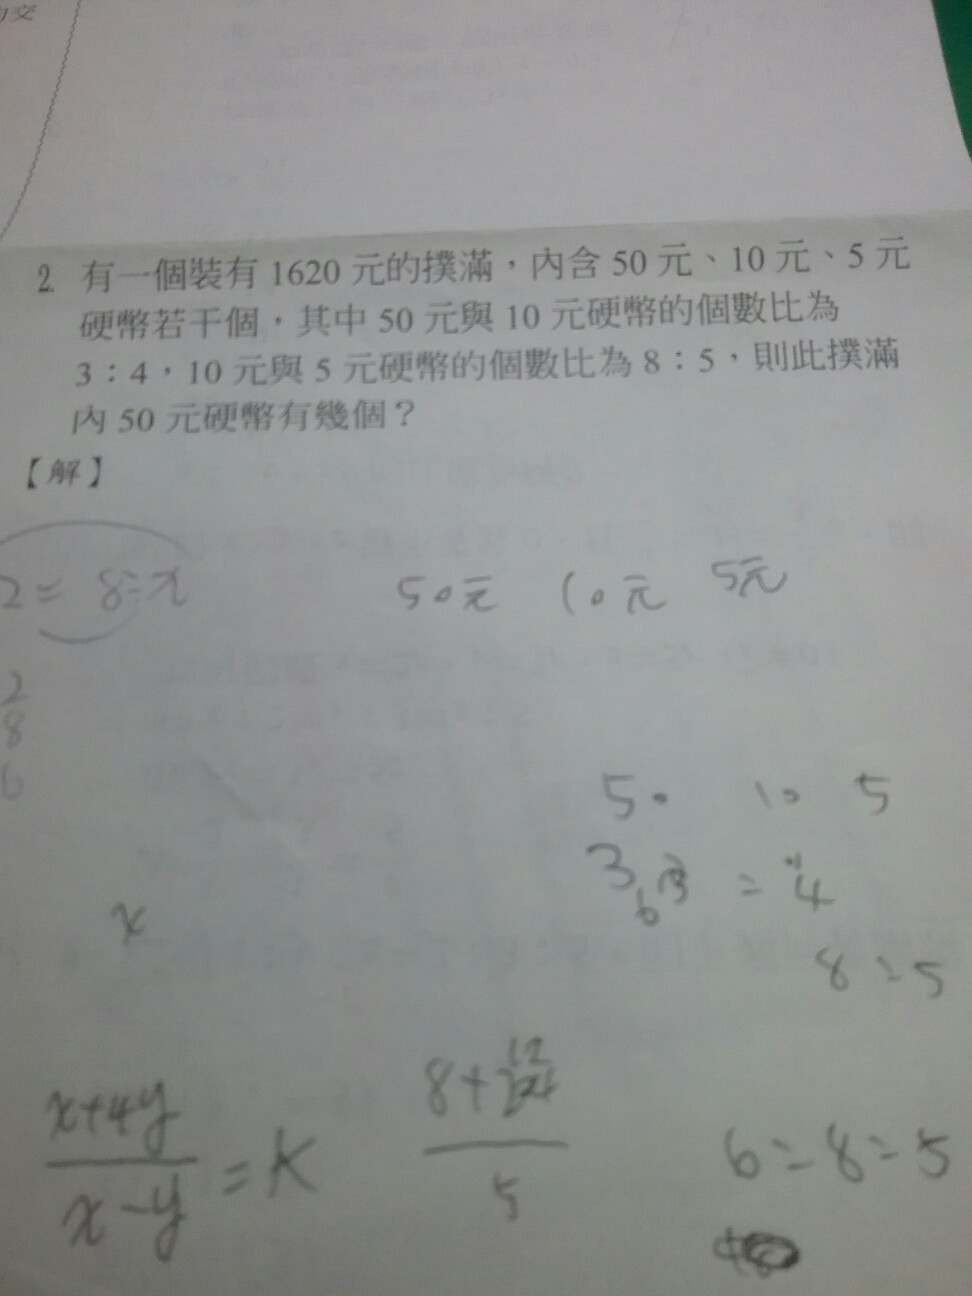 交
2. 有一個裝有 1620 元的撲滿，內含 50 元、10 元、5 元
硬幣若干個，其中 50 元與 10 元硬幣的個數比為
3：4，10 元與 5 元硬幣的個數比為 8：5，則此撲滿
內 50 元硬幣有幾個？
【解】
2 = 8 = x
50元 10元 5元
2
8
6
50 10 5
3 = 4
6
8 : 5
x
x+4y
x-y
= K
8+
12
5
6 = 8 = 5